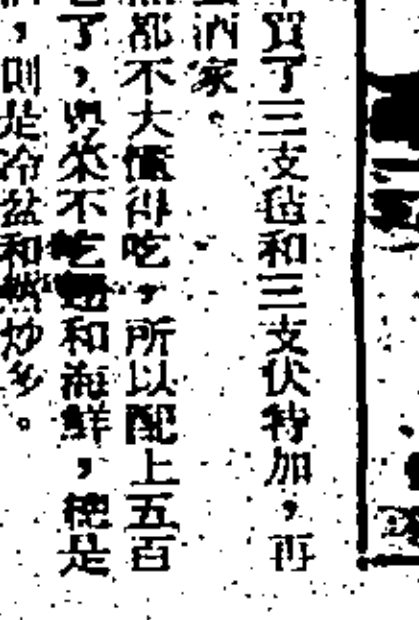 買了三支毡和三支伏特加，再
酒家。
都不大懂得吃，所以配上五百
了，與菜不吃翅和海鮮，總是
，則是冷盆和熱炒多。